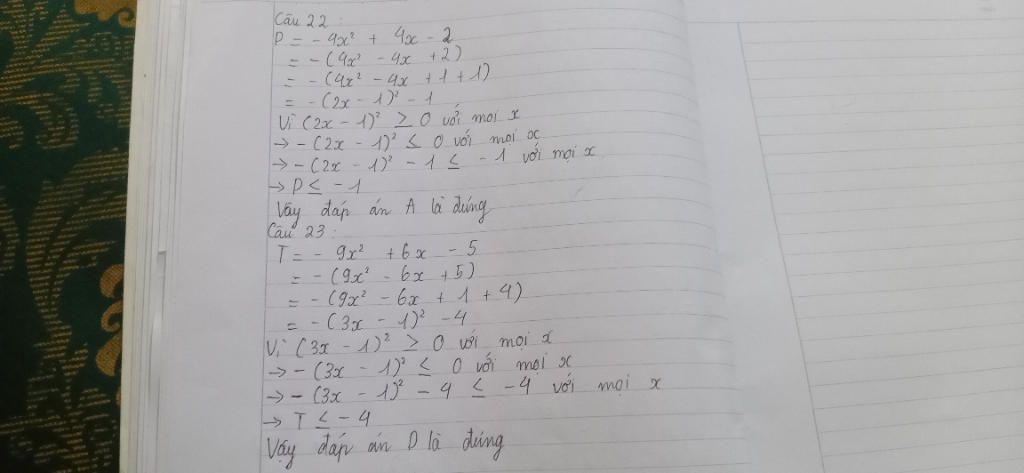 Câu 22:
P = - 4x² + 4x - 2
= -(4x² - 4x + 2)
= -(4x² - 4x + 1 + 1)
= -(2x - 1)² - 1
Vì (2x - 1)² ≥ 0 với mọi x
→ -(2x - 1)² ≤ 0 với mọi x
→ -(2x - 1)² - 1 ≤ -1 với mọi x
→ P ≤ -1
Vậy đáp án A là đúng
Câu 23:
T = - 9x² + 6x - 5
= -(9x² - 6x + 5)
= -(9x² - 6x + 1 + 4)
= -(3x - 1)² - 4
Vì (3x - 1)² ≥ 0 với mọi x
→ -(3x - 1)² ≤ 0 với mọi x
→ -(3x - 1)² - 4 ≤ -4 với mọi x
→ T ≤ -4
Vậy đáp án D là đúng